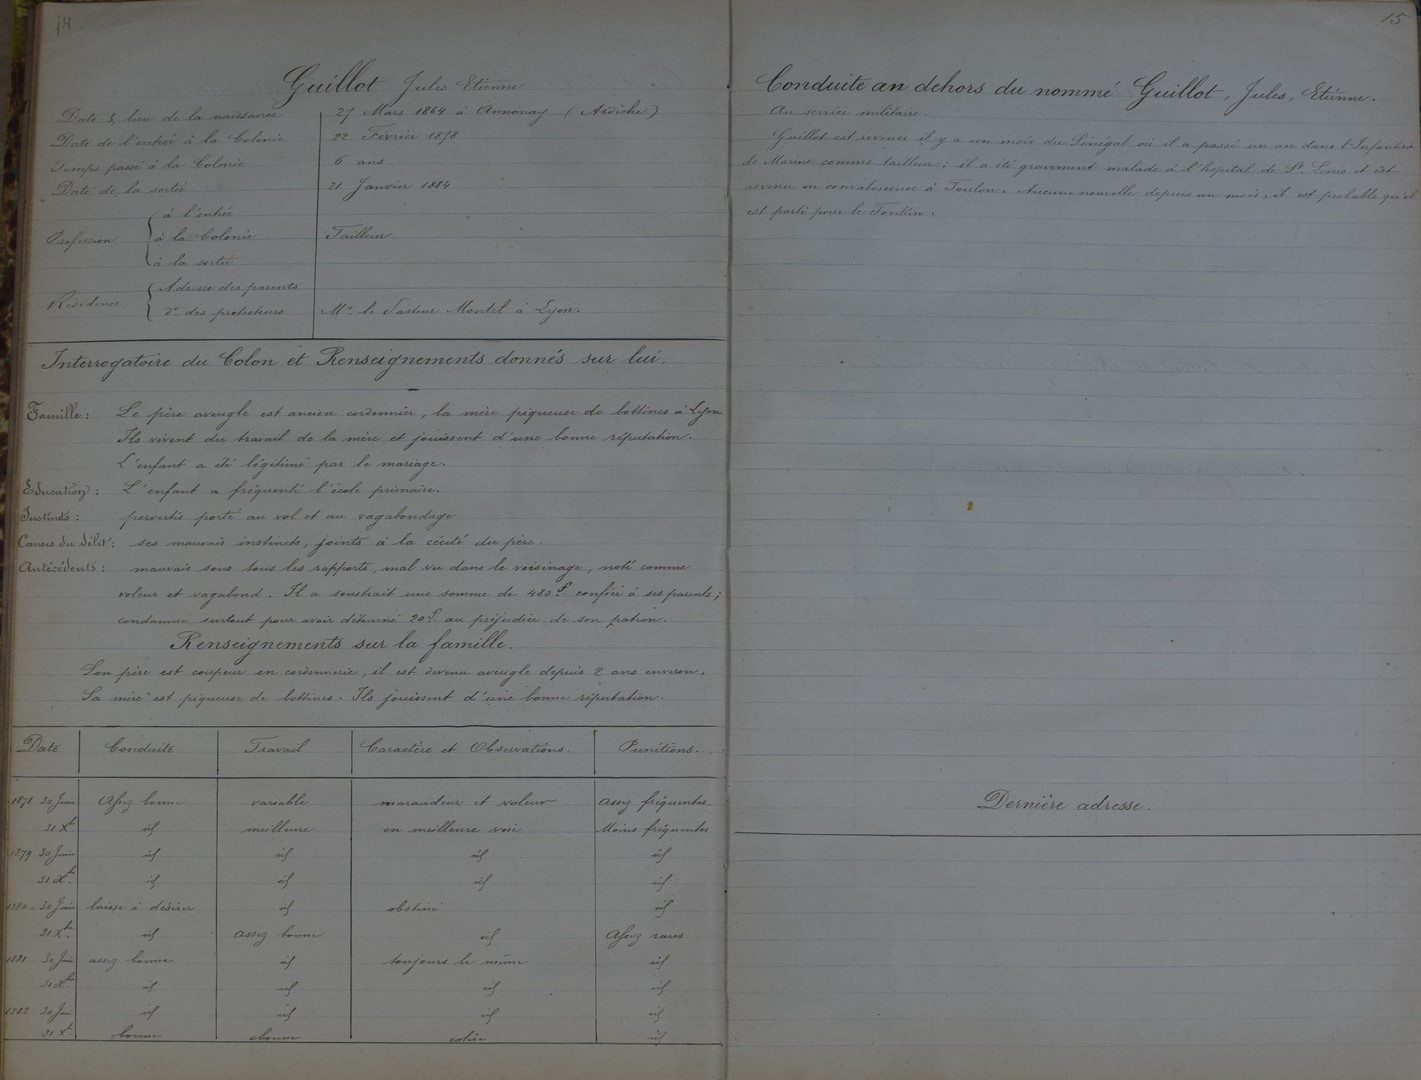 14
Guillot Jules Etienne
Date & lieu de la naissance 27 Mars 1864 à Annonay (Ardèche)
Date de l'entrée à la Colonie 22 Février 1878
Temps passé à la Colonie 6 ans
Date de la sortie 21 Janvier 1884
Profession
à l'entrée
à la Colonie Tailleur
à la sortie
Résidence
Adresse des parents
do des protecteurs Mr. le Pasteur Montel à Lyon.
Interrogatoire du Colon et Renseignements donnés sur lui.
Famille: Le père aveugle est ancien cordonnier, la mère piqueuse de bottines à Lyon
Ils vivent du travail de la mère et jouissent d'une bonne réputation.
L'enfant a été légitimé par le mariage.
Education: L'enfant a fréquenté l'école primaire.
Instincts: pervertis porté au vol et au vagabondage
Causes du délit: ses mauvais instincts, joints à la cécité du père.
Antécédents: mauvais sous tous les rapports, mal vu dans le voisinage, noté comme
voleur et vagabond. Il a soustrait une somme de 480 f. confiée à ses parents;
condamné surtout pour avoir détourné 20 f. au préjudice de son patron.
Renseignements sur la famille.
Son père est coupeur en cordonnerie, il est devenu aveugle depuis 2 ans environ.
Sa mère est piqueuse de bottines. Ils jouissent d'une bonne réputation.
Date Conduite Travail Caractère et Observations. Punitions.
1878 30 Juin Assez bonne variable maraudeur et voleur assez fréquentes
31 Xbre id meilleure en meilleure voie Moins fréquentes
1879 30 Juin id id id id
31 Xbre id id id id
1880 30 Juin laisse à désirer id obstiné id
31 Xbre id assez bonne id Assez rares
1881 30 Juin assez bonne id toujours le même id
31 Xbre id id id id
1882 30 Juin id id id id
31 Xbre bonne bonne colère id
15
Conduite au dehors du nommé Guillot, Jules, Etienne.
Au service militaire.
Guillot est revenu il y a un mois du Sénégal où il a passé un an dans l'Infanterie
de Marine comme tailleur; il a été gravement malade à l'hopital de St. Louis et est
revenu en convalescence à Toulon. Aucune nouvelle depuis un mois, il est probable qu'il
est parti pour le Tonkin.
Dernière adresse.